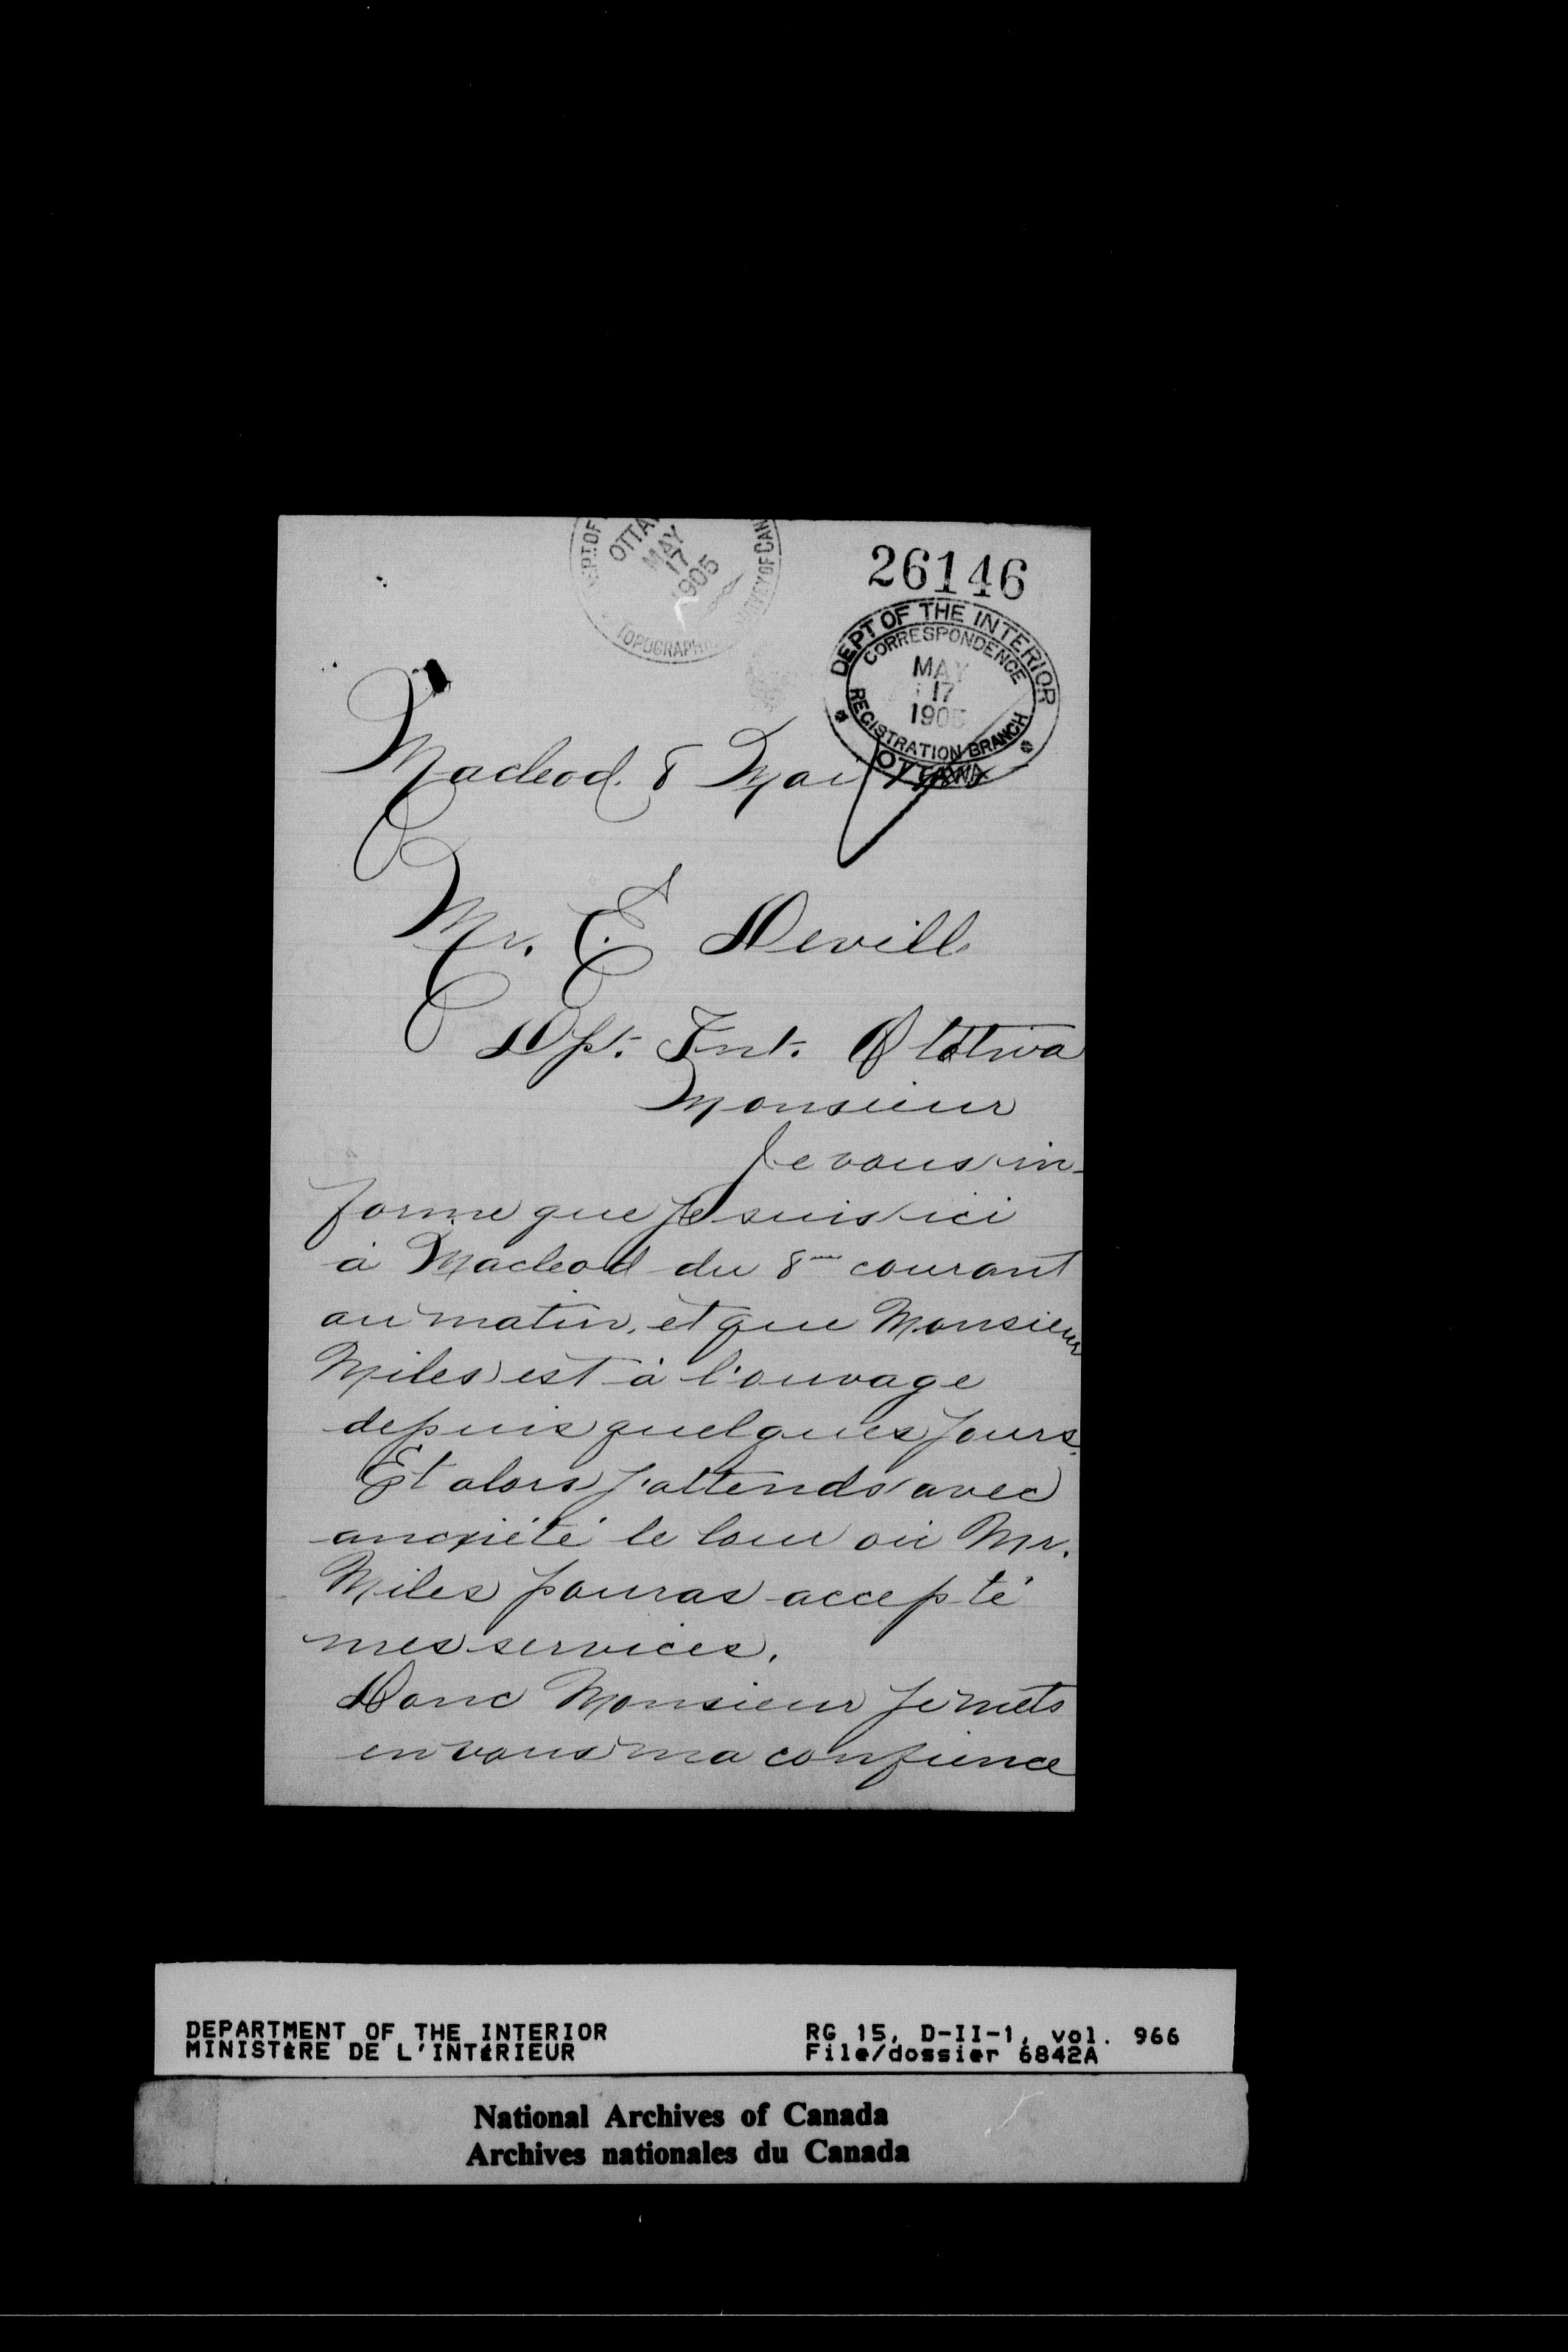 DEPT. OF
OTTA
MAY
17
1905
TOPOGRAPH
SURVEY OF CAN
26146
DEPT OF THE INTERIOR
CORRESPONDENCE
MAY
17
1905
REGISTRATION BRANCH
OTTAWA
Macleod. 8 Mai
Mr. E Devill
Dpt. Int. Ottawa
Monsieur
Je vous in-
forme que je suis ici
à Macleod du 8me courant
au matin. et que Monsieur
Miles est à l'ouvage
depuis quelques jours.
Et alors j'attends avec
ancxiété le lour où Mr.
Miles pouras accepté
mes services.
Donc Monsieur je mets
en vous ma confience
DEPARTMENT OF THE INTERIOR
MINISTÈRE DE L'INTÉRIEUR
RG 15, D-II-1, vol. 966
File/dossier 6842A
National Archives of Canada
Archives nationales du Canada